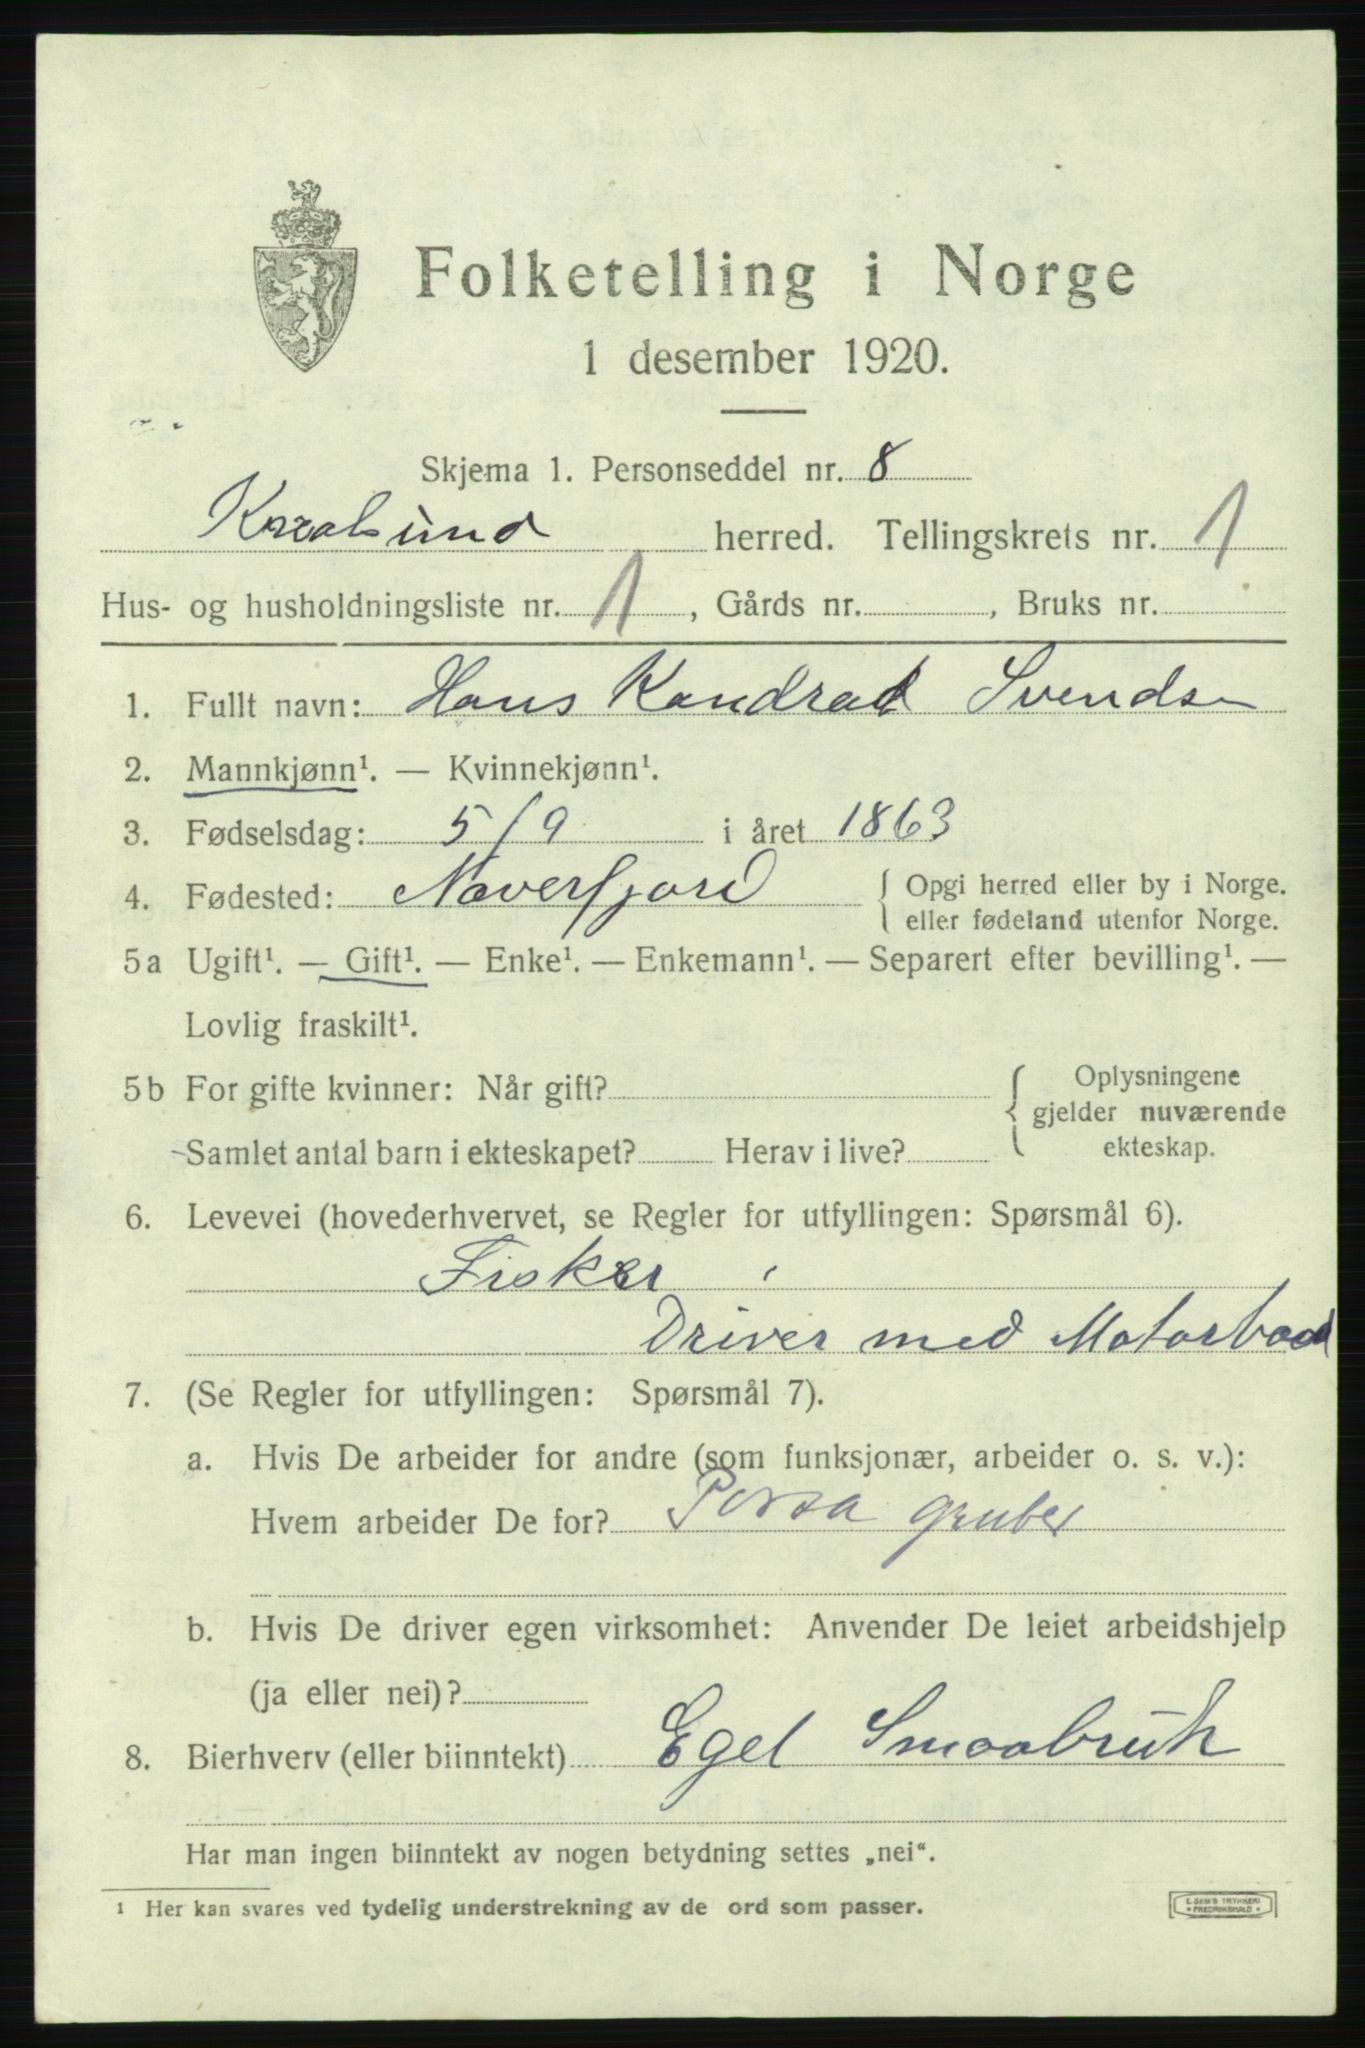 Folketelling i Norge
1 desember 1920.
Skjema 1. Personseddel nr. 8
herred. Tellingskrets nr. 1
Hus- og husholdningsliste nr. 1, Gårds nr. , Bruks nr.
1. Fullt navn: Hans Kondrad Svendsen
2. Mannkjønn¹. — Kvinnekjønn¹.
3. Fødselsdag: 5/9 i året 1863
4. Fødested: Næverfjord { Opgi herred eller by i Norge.
eller fødeland utenfor Norge.
5a Ugift¹. — Gift¹. — Enke¹. — Enkemann¹. — Separert efter bevilling¹. —
Lovlig fraskilt¹.
5b For gifte kvinner: Når gift? { Oplysningene
gjelder nuværende
ekteskap.
Samlet antal barn i ekteskapet? Herav i live?
6. Levevei (hovederhvervet, se Regler for utfyllingen: Spørsmål 6).
Fisker
Driver med Motorbaad
7. (Se Regler for utfyllingen: Spørsmål 7).
a. Hvis De arbeider for andre (som funksjonær, arbeider o. s. v.):
Hvem arbeider De for? Porsa gruber
b. Hvis De driver egen virksomhet: Anvender De leiet arbeidshjelp
(ja eller nei)?
8. Bierhverv (eller biinntekt) Eget Smaabruk
Har man ingen biinntekt av nogen betydning settes „nei“.
¹ Her kan svares ved tydelig understrekning av de ord som passer.
E. SEM'S TRYKKERI
FREDRIKSHALD